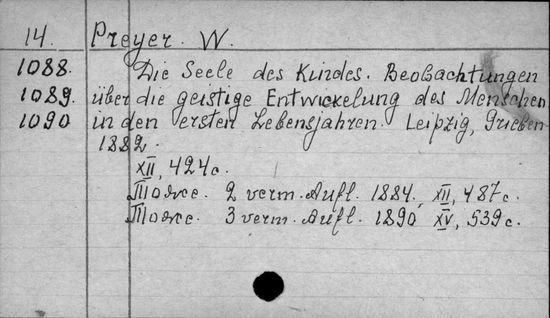 14. Preyer. W.
1088. Die Seele des Kindes. Beobachtungen
1089. über die geistige Entwickelung des Menschen
1090 in den ersten Lebensjahren. Leipzig, Grieben
1882.
XII, 424 с.
Тоже. 2 verm. Aufl. 1884, XII, 487 с.
Тоже. 3 verm. Aufl. 1890 XV, 539 с.